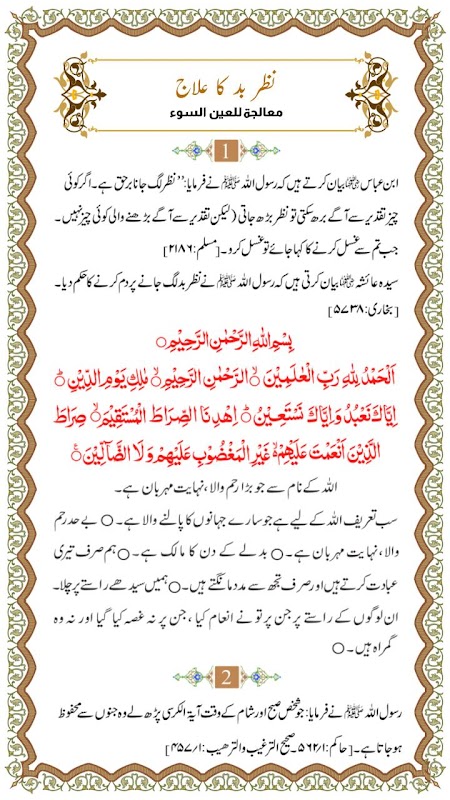 نظر بد کا علاج
معالجة للعين السوء
1
ابن عباس ؓ بیان کرتے ہیں کہ رسول اللہ ﷺ نے فرمایا: ’’نظر لگ جانا برحق ہے۔ اگر کوئی
چیز تقدیر سے آگے بڑھ سکتی تو نظر بڑھ جاتی (لیکن تقدیر سے آگے بڑھنے والی کوئی چیز نہیں۔
جب تم سے غسل کرنے کا کہا جائے تو غسل کرو۔ [مسلم: ۲۱۸۶]
سیدہ عائشہ ؓ بیان کرتی ہیں کہ رسول اللہ ﷺ نے نظر بد لگ جانے پر دم کرنے کا حکم دیا۔
[بخاری: ۵۷۳۸]
بِسْمِ اللّٰهِ الرَّحْمٰنِ الرَّحِيْمِ○
اَلْحَمْدُ لِلّٰهِ رَبِّ الْعٰلَمِيْنَ ۙ○ الرَّحْمٰنِ الرَّحِيْمِ ۙ○ مٰلِكِ يَوْمِ الدِّيْنِ ۭ○
اِيَّاكَ نَعْبُدُ وَاِيَّاكَ نَسْتَعِيْنُ ۭ○ اِهْدِنَا الصِّرَاطَ الْمُسْتَقِيْمَ ۙ○ صِرَاطَ
الَّذِيْنَ اَنْعَمْتَ عَلَيْهِمْ ۙ○ غَيْرِ الْمَغْضُوْبِ عَلَيْهِمْ وَلَا الضَّآلِّيْنَ ۧ○
اللہ کے نام سے جو بڑا رحم والا، نہایت مہربان ہے۔
سب تعریف اللہ کے لیے ہے جو سارے جہانوں کا پالنے والا ہے۔ ○ بے حد رحم
والا، نہایت مہربان ہے۔ ○ بدلے کے دن کا مالک ہے۔ ○ ہم صرف تیری
عبادت کرتے ہیں اور صرف تجھ سے مدد مانگتے ہیں۔ ○ ہمیں سیدھے راستے پر چلا۔
ان لوگوں کے راستے پر جن پر تو نے انعام کیا، جن پر نہ غصہ کیا گیا اور نہ وہ
گمراہ ہیں۔ ○
2
رسول اللہ ﷺ نے فرمایا: جو شخص صبح اور شام کے وقت آیۃ الکرسی پڑھ لے وہ جنوں سے محفوظ
ہو جاتا ہے۔ [حاکم: ۵۶۲/۱۔ صحیح الترغیب والترھیب: ۴۵۷/۱]